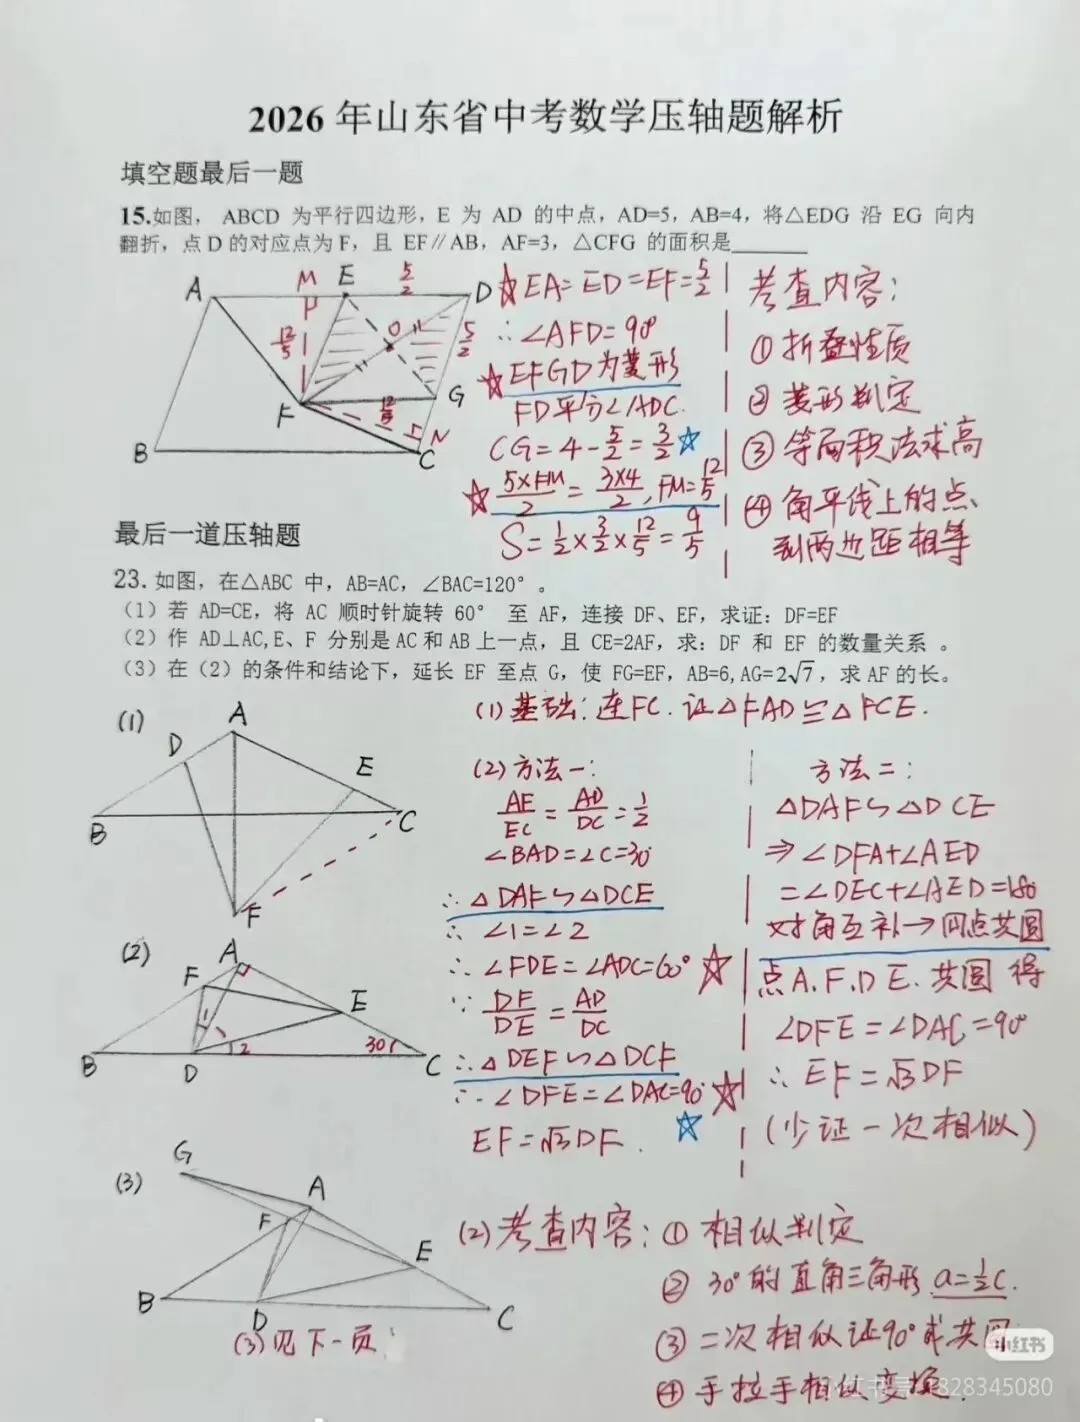 2026 年山东省中考数学压轴题解析
填空题最后一题
15.如图， ABCD 为平行四边形，E 为 AD 的中点，AD=5，AB=4，将△EDG 沿 EG 向内
翻折，点 D 的对应点为 F，且 EF∥AB，AF=3，△CFG 的面积是______
A M E 5/2 D
H
12/5 O 5/2
F 12/5 G
N
B C
☆EA=ED=EF=5/2
∴∠AFD=90°
☆EFGD为菱形
FD平分∠ADC.
CG=4-5/2=3/2☆
☆5×FM/2=3×4/2,FM=12/5
S=1/2×3/2×12/5=9/5
考查内容：
①折叠性质
②菱形判定
③等面积法求高
④角平线上的点、
到两边距相等
最后一道压轴题
23. 如图，在△ABC 中，AB=AC，∠BAC=120°。
（1）若 AD=CE，将 AC 顺时针旋转 60° 至 AF，连接 DF、EF，求证：DF=EF
（2）作 AD⊥AC,E、F 分别是 AC 和 AB 上一点，且 CE=2AF，求：DF 和 EF 的数量关系 。
（3）在（2）的条件和结论下，延长 EF 至点 G，使 FG=EF，AB=6,AG=2√7，求 AF 的长。
(1)
A
D E
B C
F
(1)基础：连FC.证△FAD≌△FCE.
(2)方法一：
AE/EC=AD/DC=1/2
∠BAD=∠C=30°
∴△DAF∽△DCE
∴ ∠1=∠2
∴ ∠FDE=∠ADC=60°☆
∵ DF/DE=AD/DC
∴△DEF∽△DCF
∴∠DFE=∠DAC=90°☆
EF=√3DF. ☆
方法二：
△DAF∽△DCE
⇒∠DFA+∠AED
=∠DEC+∠AED=180
对角互补→四点共圆
点A.F.D E.共圆 得
∠DFE=∠DAC=90°
∴EF=√3DF
(少证一次相似)
(2)
A
F
E
1
2 30°
B D C
(3)
G
A
F
E
B D C
(3)见下一页
(2)考查内容：①相似判定
②30°的直角三角形 a=1/2c.
③二次相似证90°或共圆
④手拉手相似变换.
小红书
828345080